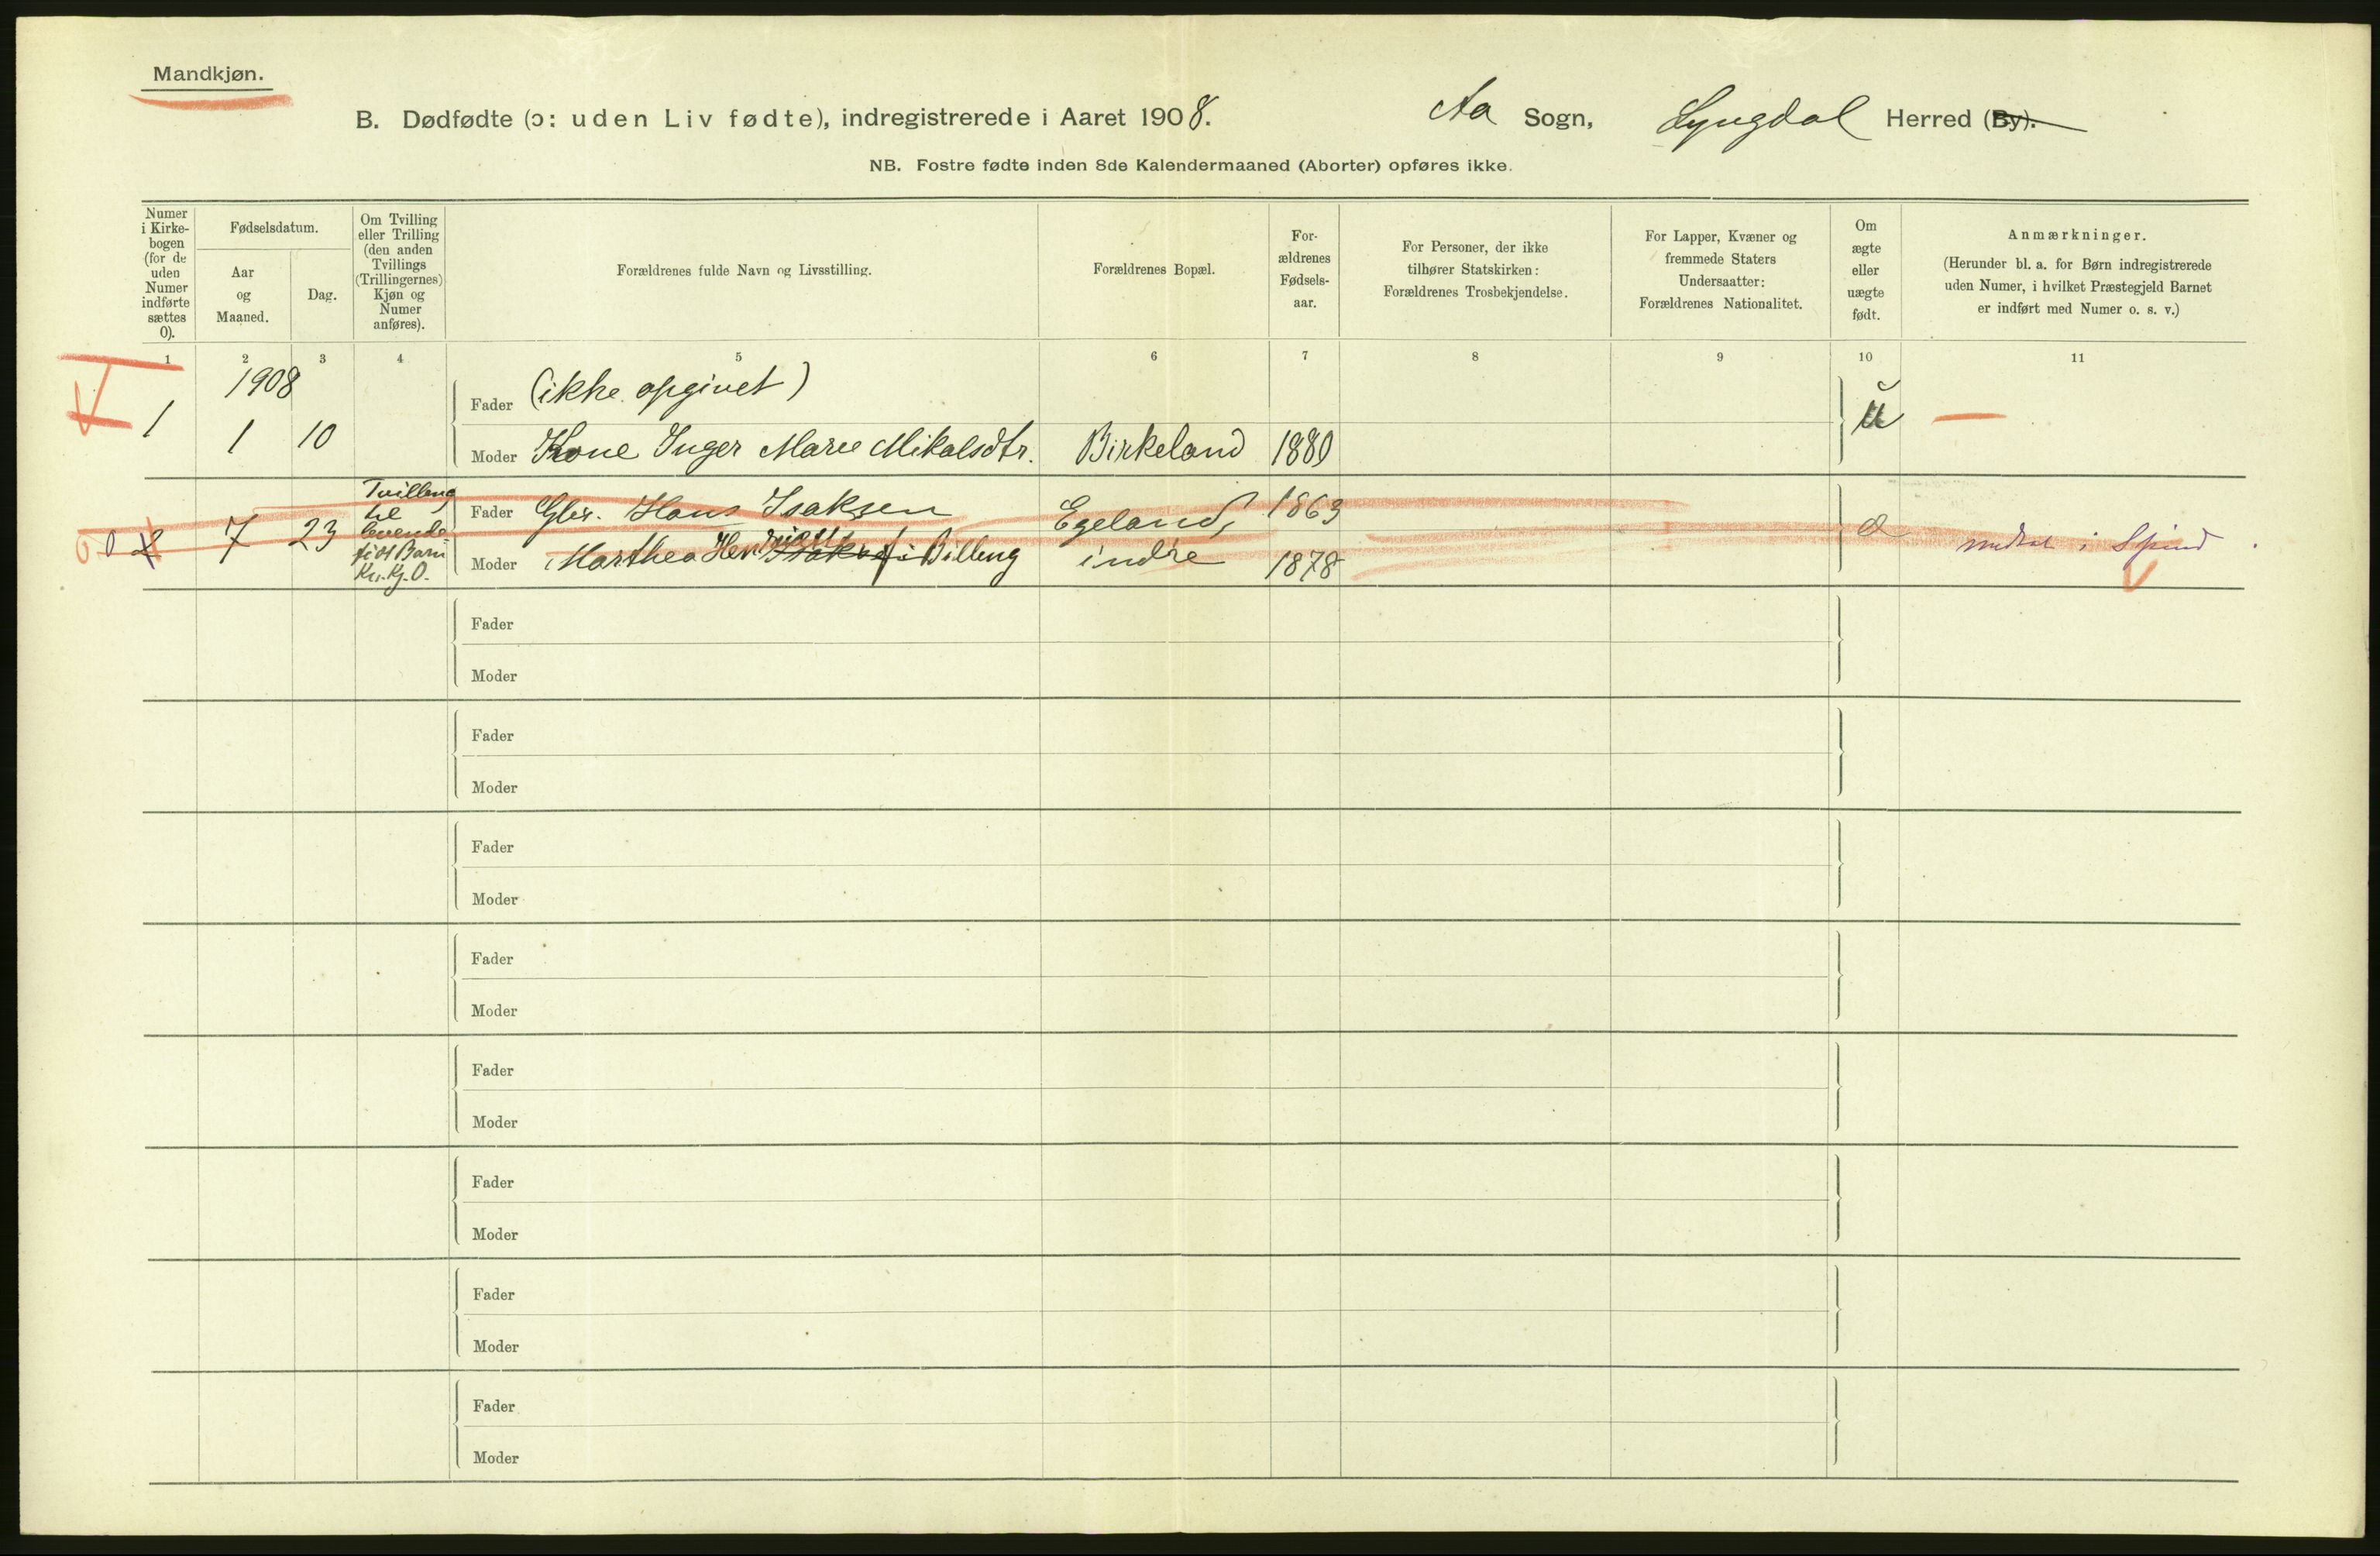 Mandkjøn.
B. Dødfødte (ɔ: uden Liv fødte), indregistrerede i Aaret 1908. Aa Sogn, Lyngdal Herred (By).
NB. Fostre fødte inden 8de Kalendermaaned (Aborter) opføres ikke.
Numer
i Kirke-
bogen
(for de
uden
Numer
indførte
sættes
0).
Fødselsdatum.
Aar
og
Maaned.
Dag.
Om Tvilling
eller Trilling
(den anden
Tvillings
(Trillingernes)
Kjøn og
Numer
anføres).
Forældrenes fulde Navn og Livsstilling.
Forældrenes Bopæl.
For-
ældrenes
Fødsels-
aar.
For Personer, der ikke
tilhører Statskirken:
Forældrenes Trosbekjendelse.
For Lapper, Kvæner og
fremmede Staters
Undersaatter:
Forældrenes Nationalitet.
Om
ægte
eller
uægte
født.
Anmærkninger.
(Herunder bl. a. for Børn indregistrerede
uden Numer, i hvilket Præstegjeld Barnet
er indført med Numer o. s. v.)
1 2 3 4 5 6 7 8 9 10 11
1908
Fader (ikke opgivet)
1 1 10 u
Moder Kone Inger Marie Mikalsdtr. Birkeland 1880
Tvilling
til
levende
født Barn
Kv. Kj. 0.
0 0 2 7 23
Fader Gbr. Hans Isaksen Egeland, 1863
Moder Marthea f. Billing indre 1878
i Spind
Fader
Moder
Fader
Moder
Fader
Moder
Fader
Moder
Fader
Moder
Fader
Moder
Fader
Moder
Fader
Moder